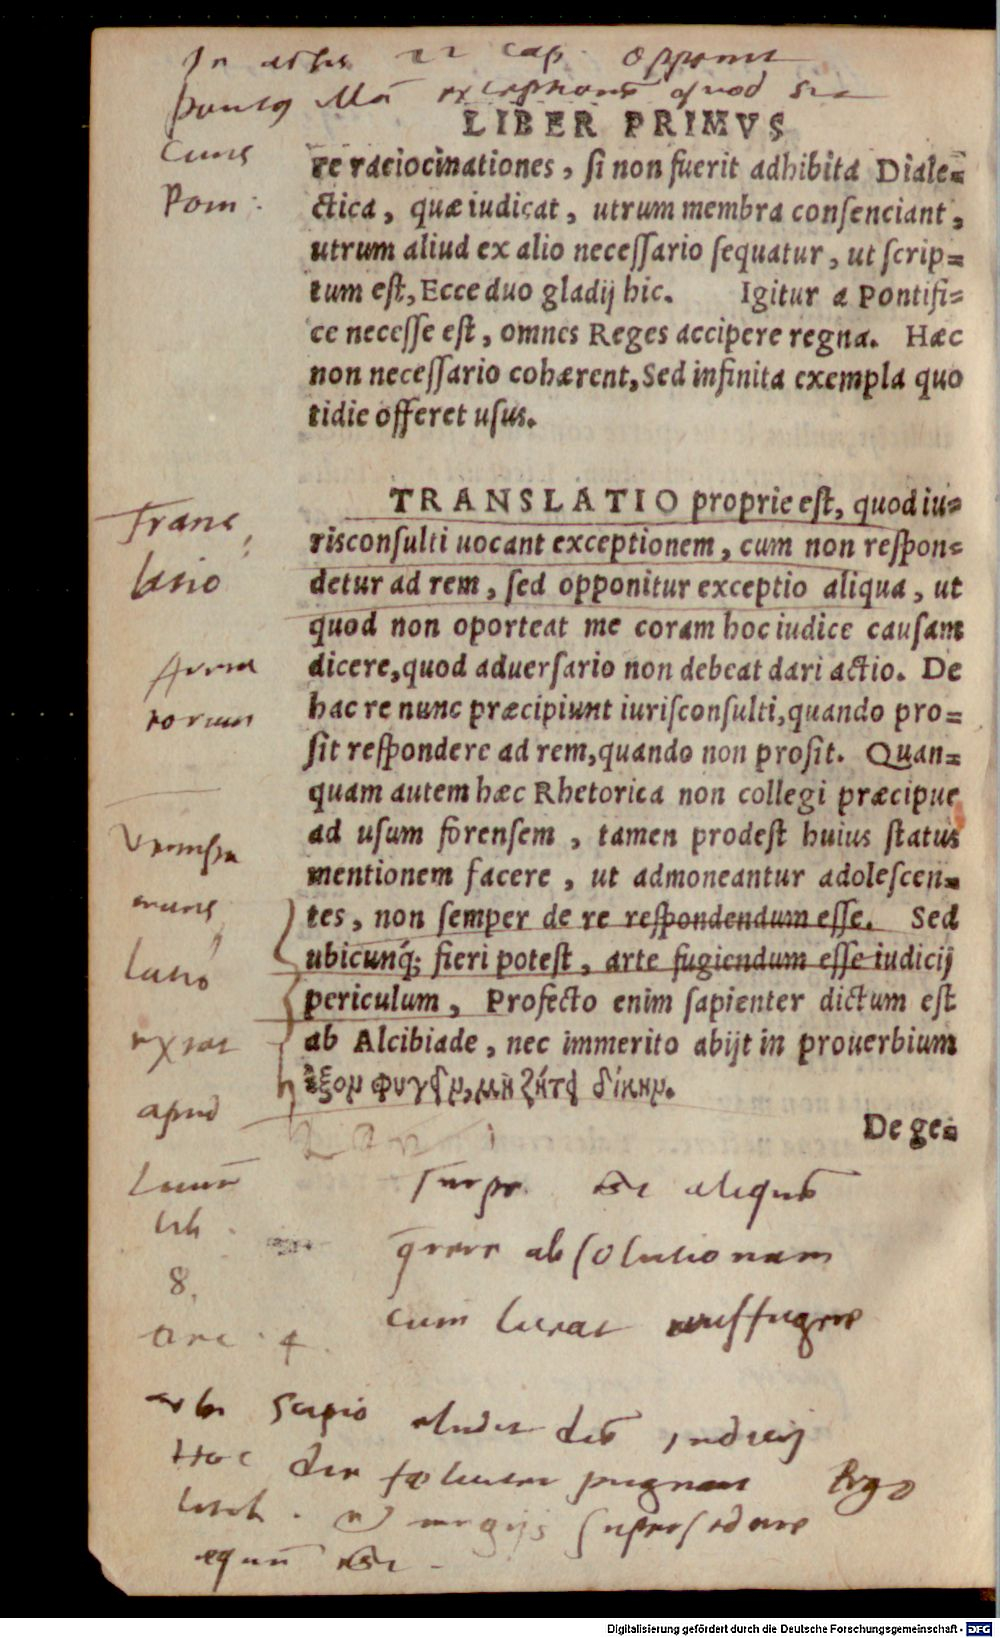 In actis 22 cap. opponit
quod
LIBER PRIMVS
re raciocinationes, ſi non fuerit adhibita Diale=
ctica, quæ iudicat, utrum membra conſenciant,
utrum aliud ex alio neceſſario ſequatur, ut ſcrip=
tum eſt, Ecce duo gladij hic. Igitur a Pontifi=
ce neceſſe eſt, omnes Reges accipere regna. Hæc
non neceſſario cohærent, Sed infinita exempla quo
tidie offeret uſus.
TRANSLATIO proprie eſt, quod iu=
riſconſulti uocant exceptionem, cum non reſpon=
detur ad rem, ſed opponitur exceptio aliqua, ut
quod non oporteat me coram hoc iudice cauſam
dicere, quod aduerſario non debeat dari actio. De
hac re nunc præcipiunt iuriſconſulti, quando pro=
ſit reſpondere ad rem, quando non proſit. Quan=
quam autem hæc Rhetorica non collegi præcipue
ad uſum forenſem, tamen prodeſt huius ſtatus
mentionem facere, ut admoneantur adoleſcen=
tes, non ſemper de re reſpondendum eſſe. Sed
ubicunq́; fieri poteſt, arte fugiendum eſſe iudicij
periculum, Profecto enim ſapienter dictum eſt
ab Alcibiade, nec immerito abijt in prouerbium
ἐξὸν φυγεῖν, μὴ ζήτει δίκην.
De ge=
Trans
latio
extat
apud
lib.
8.
Turpe est aliquem
absolutionem
cum liceat
Scipio
Hoc die
Ergo
supersedere
est.
Digitalisierung gefördert durch die Deutsche Forschungsgemeinschaft - DFG